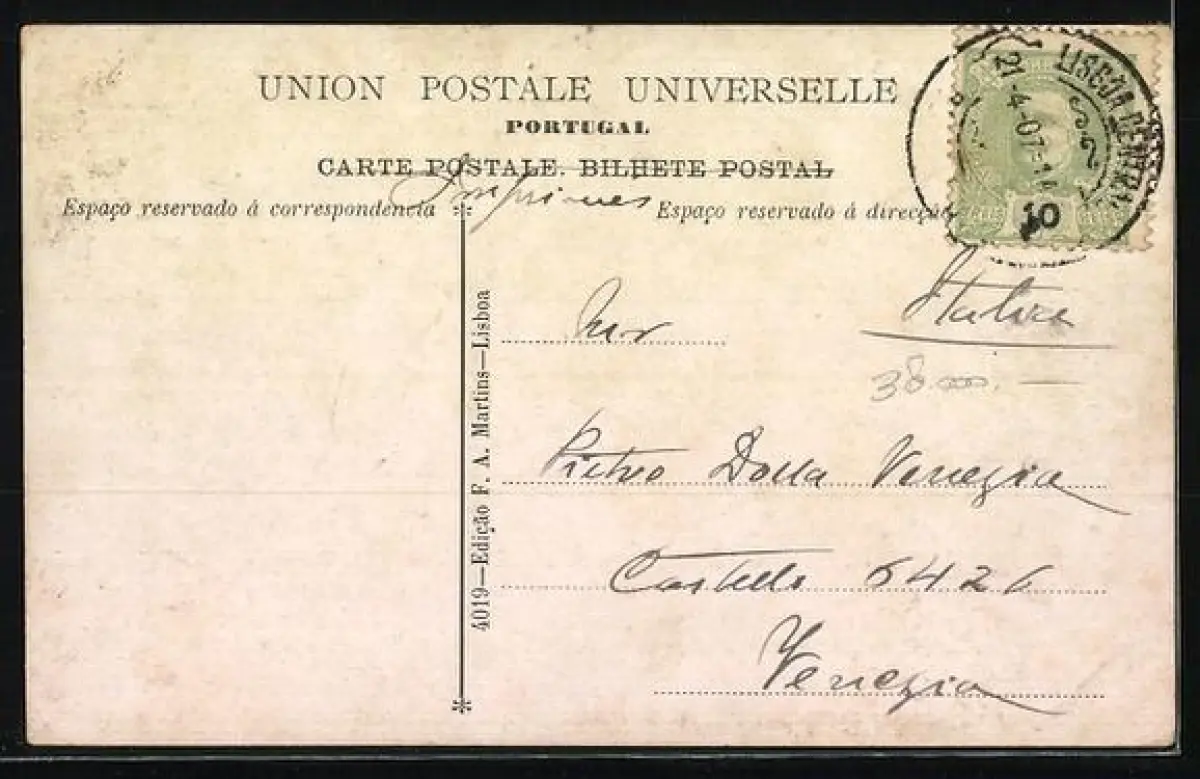 UNION POSTALE UNIVERSELLE
PORTUGAL
CARTE POSTALE. BILHETE POSTAL
Espaço reservado á correspondencia
Espaço reservado á direcção
LISBOA CENTRAL
21-4-07
10
4019—Edição F. A. Martins—Lisboa
38
Pietro Dalla Venezia
Castello 6426
Venezia